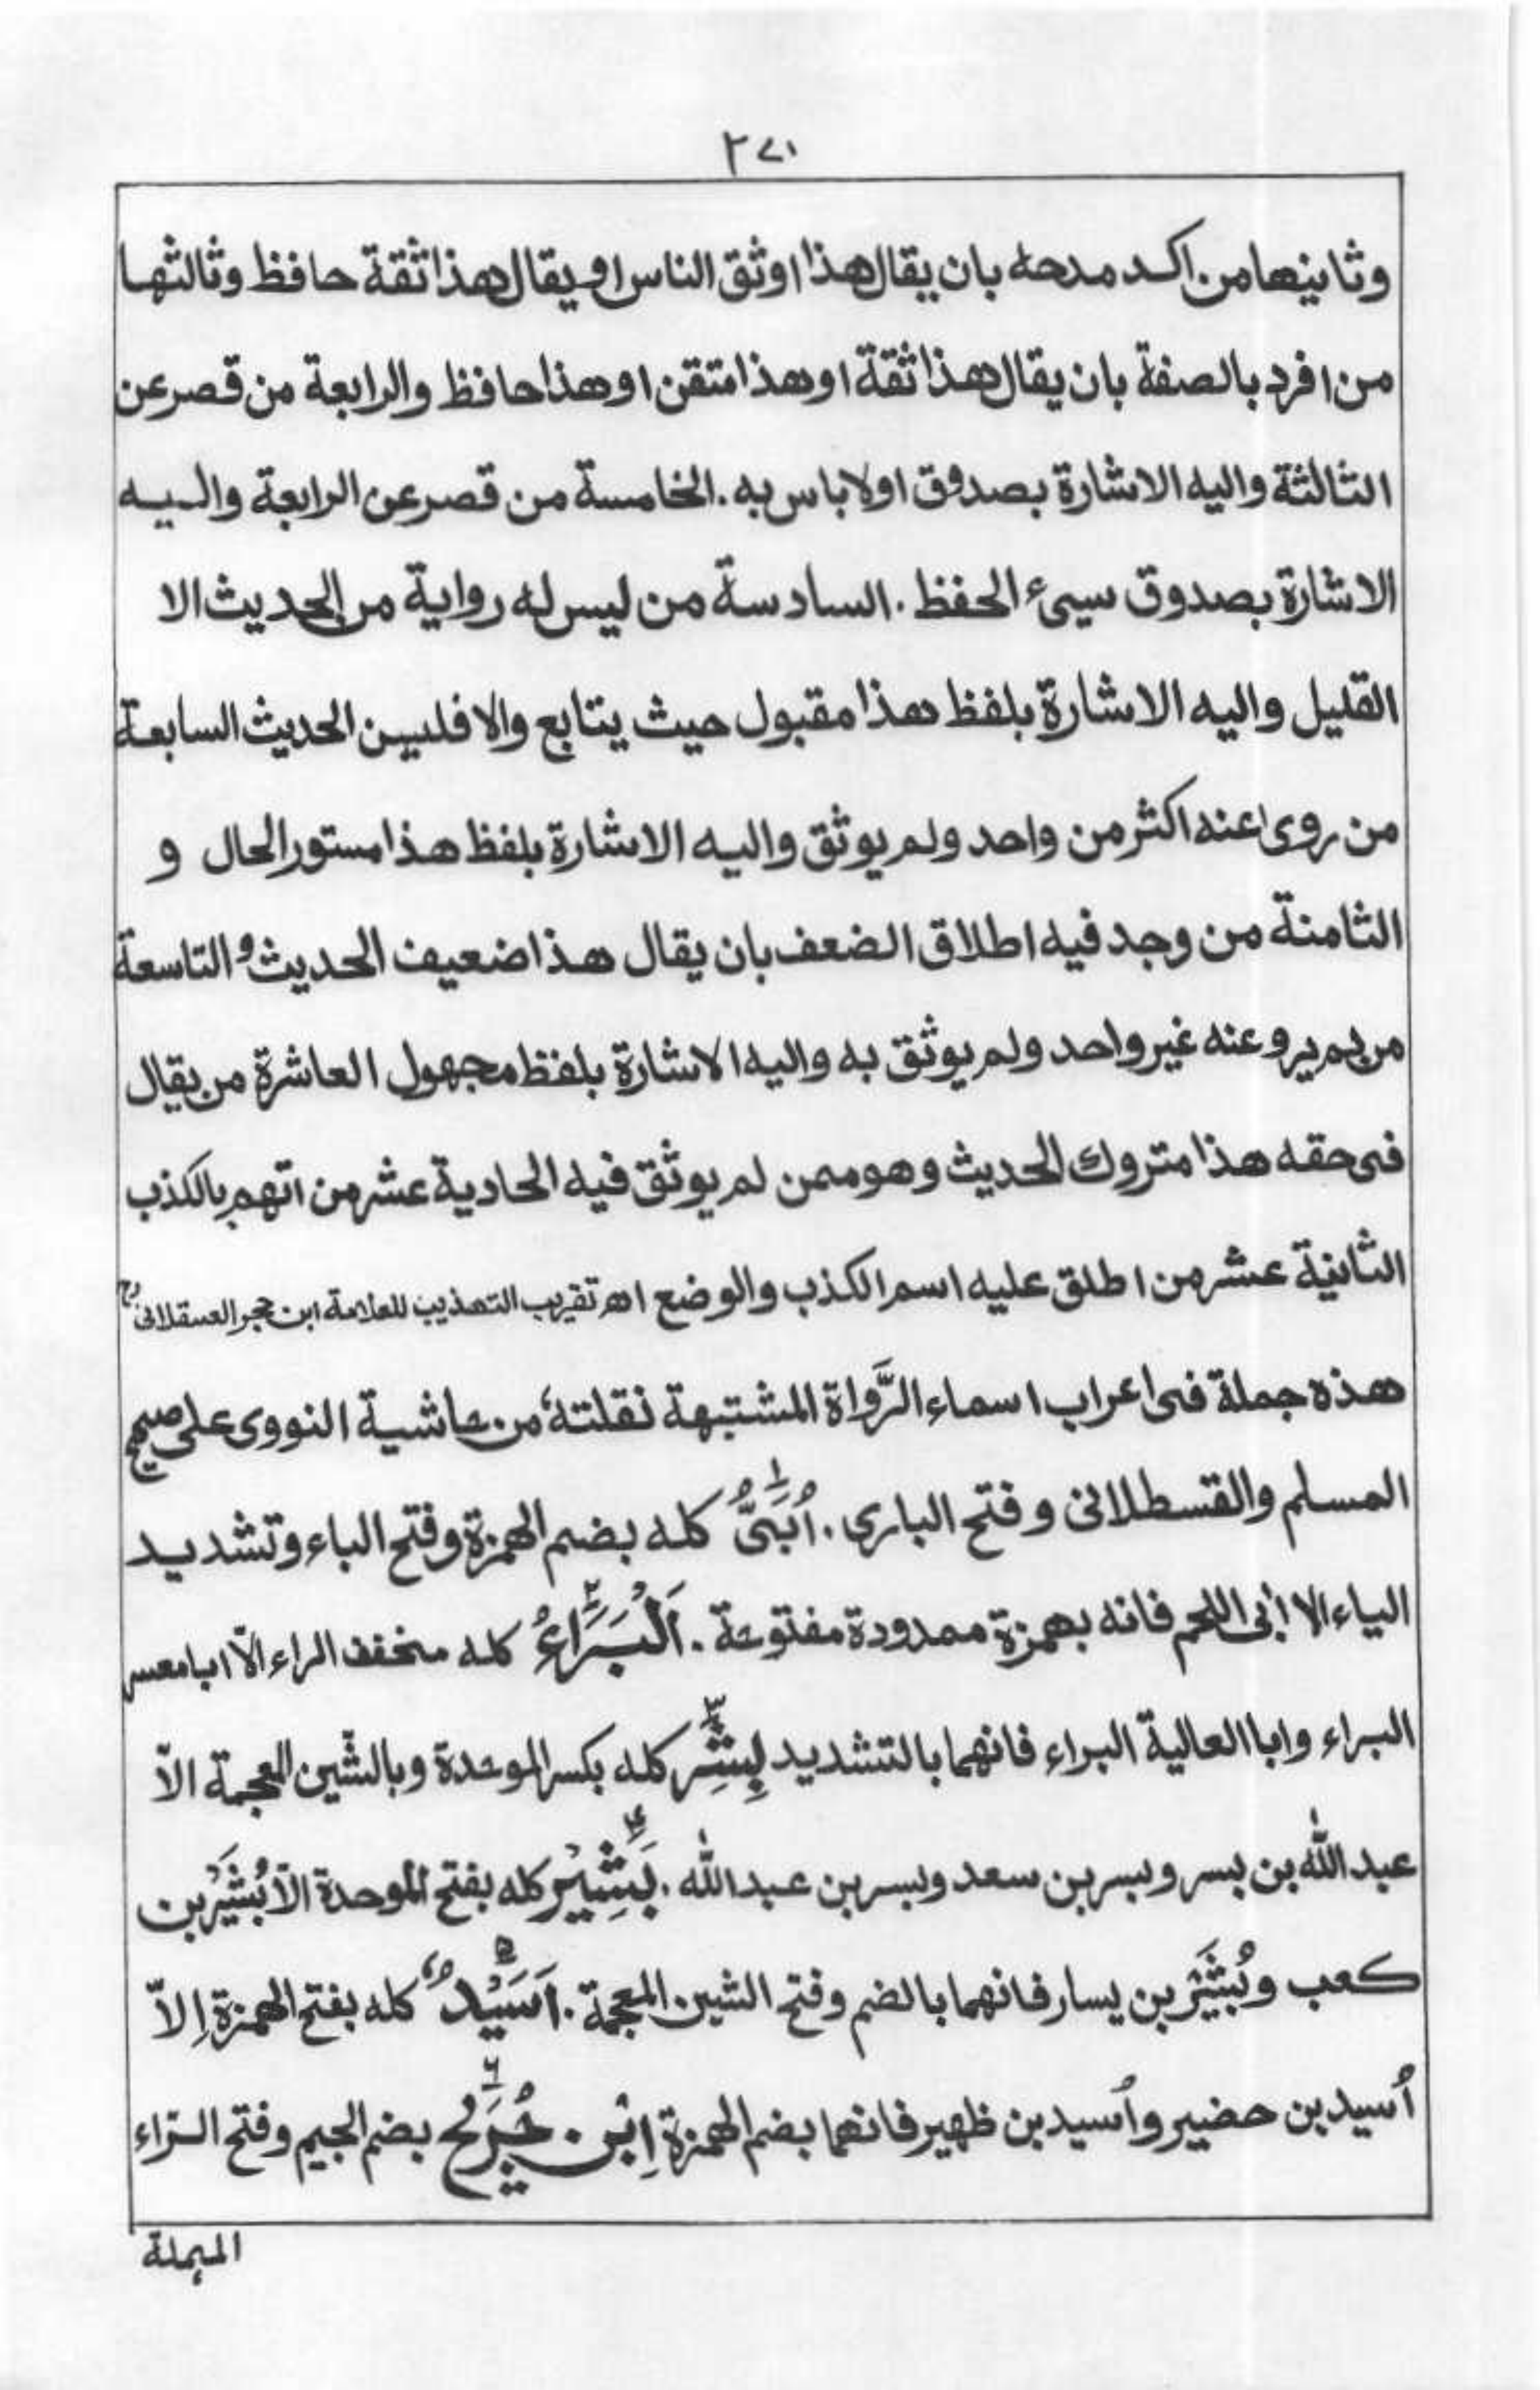 ٢٧١
وثانيها من اكد مدحه بان يقال هذا اوثق الناس او يقال هذا ثقة حافظ وثالثها
من افرد بالصفة بان يقال هذا ثقة او هذا متقن او هذا حافظ والرابعة من قصر عن
الثالثة واليه الاشارة بصدوق او لا باس به . الخامسة من قصر عن الرابعة واليه
الاشارة بصدوق سيئ الحفظ . السادسة من ليس له رواية من الحديث الا
القليل واليه الاشارة بلفظ هذا مقبول حيث يتابع والا فلين الحديث السابعة
من روى عنه اكثر من واحد ولم يوثق واليه الاشارة بلفظ هذا مستور الحال و
الثامنة من وجد فيه اطلاق الضعف بان يقال هذا ضعيف الحديث و التاسعة
من لم يرو عنه غير واحد ولم يوثق به واليه الاشارة بلفظ مجهول العاشرة من يقال
فى حقه هذا متروك الحديث وهو ممن لم يوثق فيه الحادية عشر من اتهم بالكذب
الثانية عشر من اطلق عليه اسم الكذب والوضع اهـ تقريب التهذيب للعلامة ابن حجر العسقلانى رح
هذه جملة فى اعراب اسماء الرَّواة المشتبهة نقلتهٗ من حاشية النووى على صحيح
المسلم والقسطلانى وفتح البارى . اُبَىٌّ ١ كله بضم الهمزة وفتح الباء وتشديد
الياء الا اٰبى اللحم فانه بهمزة ممدودة مفتوحة . اَلْبَرَاءُ ٢ كله مخفف الراء الّا ابا معسر
البراء وابا العالية البراء فانهما بالتشديد بِشْر ٣ كله بكسر الموحدة وبالشّين المعجمة الاّ
عبد اللّٰه بن بسر وبسر بن سعد وبسر بن عبد اللّٰه . بَشِيْر ٤ كله بفتح الموحدة الاّ بُشَيْر بن
كعب وبُشَيْر بن يسار فانهما بالضم وفتح الشين المعجمة . اَسَيْدٌ ٥ كله بفتح الهمزة اِلاّ
اُسيد بن حضير واُسيد بن ظهير فانهما بضم الهمزة اِبْن . جُرَيْج ٦ بضم الجيم وفتح الرّاء
المهملة